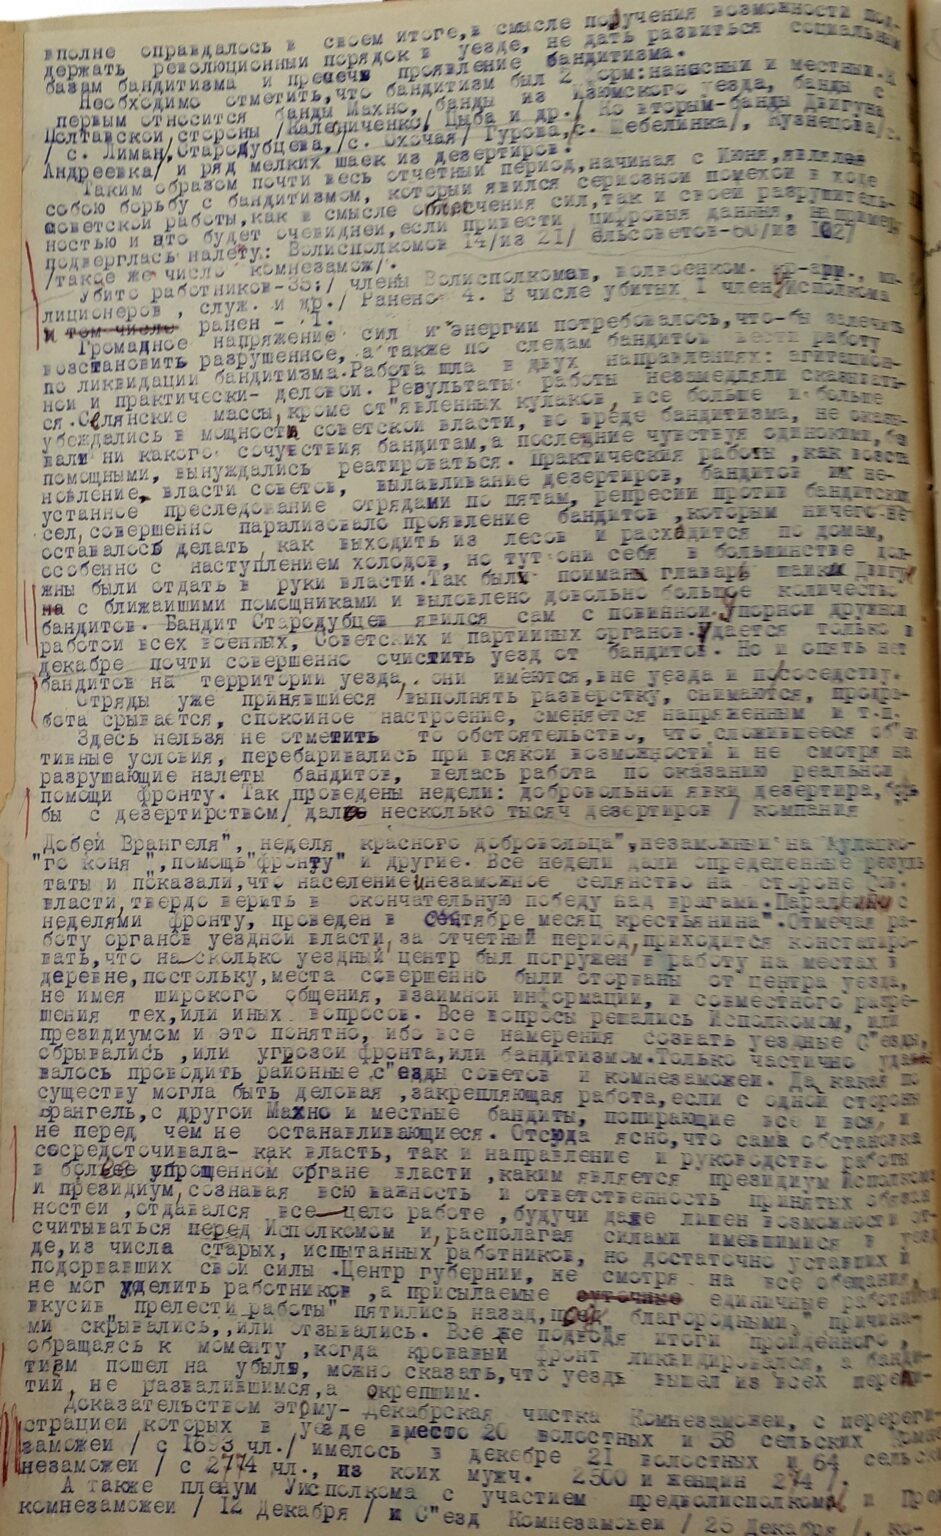 вполне оправдалось в своем итоге, в смысле получения возможности под-
держать революционный порядок в уезде, не дать развиться социальным
базам бандитизма и пресечь проявление бандитизма.
Необходимо отметить, что бандитизм был 2 форм: наносный и местный. К
первым относится банды Махно, банды из Изюмского уезда, банды с
Полтавской стороны /Калениченко/ Цыба и др./ Ко вторым-банды Двигуна
/ с. Лиман, Стародубцева, /с. Охочая/ Гурова, с. Шебелинка/, Кузнецова/с.
Андреевка/ и ряд мелких шаек из дезертиров.
Таким образом почти весь отчетный период, начиная с Июня, являлся
собою борьбу с бандитизмом, который явился сериозной помехой в ходе
советской работы, как в смысле отвлечения сил, так и своей разрушитель-
ностью и это будет очевидней, если привести цифровыя данныя, например
подверглась налету: Волисполкомов 14/из 21/ ельсоветов-60/из 1027
/такое же число комнезамож/.
Убито работников-35:/ члены Волисполкомов, волвоенком. кр-арм., ми-
лиционеров, служ. и др./ Ранено 4. В числе убитых I член Уисполкома
и том числе ранен - I.
Громадное напряжение сил и энергии потребовалось, что-бы залечить
возстановить разрушенное, а также по следам бандитов вести работу
по ликвидации бандитизма. Работа шла в двух направлениях: агитацион-
ной и практически- деловой. Результаты работы незамедляли сказывать-
ся. Селянские массы, кроме от"явленных кулаков, все больше и больше
убеждались в мощности советской власти, во вреде бандитизма, не оказы-
вали ни какого сочувствия бандитам, а последние чувствуя одинокими, без
помощными, вынуждались реатироваться. Практическия работы, как возста
новление, власти советов, вылавливание дезертиров, бандитов их не-
устанное преследование отрядами по пятам, репресии против бандитских
сел, совершенно парализовало проявление бандитов, которым ничего не
оставалось делать как выходить из лесов и расходится по домам,
особенно с наступлением холодов, но тут они себя в большинстве дол-
жны были отдать в руки власти. Так были пойманы главарь шайки Двигу
на с ближайшими помощниками и выловлено довольно большое количество
бандитов. Бандит Стародубцев явился сам с повинной. Упорной дружной
работой всех военных, Советских и партийных органов. Удается только в
декабре почти совершенно очистить уезд от бандитов. Но и опять нет
бандитов на территории уезда, они имеются, вне уезда и по соседству.
Отряды уже принявшиеся выполнять разверстку, снимаются, продра-
бота срывается, спокойное настроение, сменяется напряженным и т.п.
Здесь нельзя не отметить то обстоятельство, что сложившееся об"ек
тивные условия, перебаривались при всякой возможности и не смотря на
разрушающие налеты бандитов, велась работа по оказанию реальной
помощи фронту. Так проведены недели: добровольной явки дезертира, борь
бы с дезертирством/ дала несколько тысяч дезертиров / компания
Добей Врангеля", "неделя красного добровольца", незаможный на кулацко-
"го коня ", помощь "фронту" и другие. Все недели дали определенные резуль
таты и показали, что население и незаможное селянство на стороне Сов.
власти, твердо верить в окончательную победу над врагами. Паралельно с
неделями фронту, проведен в сентябре "месяц крестьянина". Отмечая ра-
боту органов уездной власти, за отчетный период, приходится констатиро-
вать, что на сколько уездный центр был погружен в работу на местах в
деревне, постольку, места совершенно были оторваны от центра уезда,
не имея широкого общения, взаимной информации, и совместного разре-
шения тех, или иных вопросов. Все вопросы решались Исполкомом, или
президиумом и это понятно, ибо все намерения созвать уездные С"езды,
обрывались, или угрозой фронта, или бандитизмом. Только частично уда
валось проводить районные с"езды советов и комнезаможей. Да какая по
существу могла быть деловая, закрепляющая работа, если с одной стороны
Врангель, с другой Махно и местные бандиты, попирающие все и вся, и
не перед чем не останавливающиеся. Отсюда ясно, что сама обстановка
сосредоточивала- как власть, так и направление и руководство работы
в более упрощенном органе власти, каким является президиум Исполкома
и президиум, сознавая всю важность и ответственность принятых обязан
ностей, отдавался все цело работе, будучи даже лишен возможности от-
считываться перед Исполкомом и, располагая силами имевшимися в уез
де, из числа старых, испытанных работников, но достаточно уставших и
подорвавших свои силы. Центр губернии, не смотря на все обещания,
не мог уделить работников, а присылаемые единичные работники
вкусив "прелести работы" пятились назад, под благородными," причина-
ми скрывались,, или отзывались. Все же подводя итоги пройденного,
обращаясь к моменту, когда кровавый фронт ликвидировался, а банди-
тизм пошел на убыль, можно сказать, что уезд вышел из всех перепи-
тий, не развалившимся, а окрепшим.
Доказательством этому- Декабрская чистка Комнезаможей, с перереги-
страцией которых в уезде вместо 20 волостных и 58 сельских Комне
заможей / с 1693 чл./ имелось в декабре 21 волостных и 64 сельских
незаможей / с 2774 чл., из коих мужч. 2500 и женщин 274 /.
А также пленум Уисполкома с участием предволисполкома и Пред
комнезаможей / 12 Декабря / и С"езд Комнезаможей / 25 Декабря /, ко-